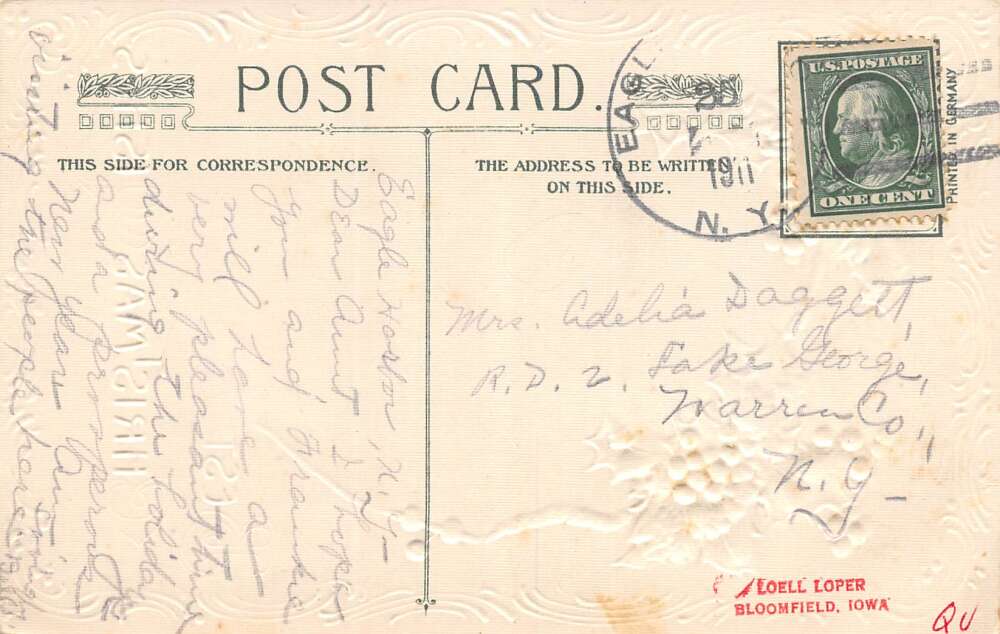 POST CARD.
THIS SIDE FOR CORRESPONDENCE.
THE ADDRESS TO BE WRITTEN
ON THIS SIDE.
EAGL
1911
N. Y.
U.S. POSTAGE
ONE CENT
PRINTED IN GERMANY
Eagle Harbor, N.Y-
Dear Aunt, I hope
you and Frankie
will have a
very pleasant time
during the holiday
and a Prosperous
New Year. Am
visiting the people here
Mrs. Adelia Daggett,
R.D. 2. Lake George,
Warren Co.,
N.Y-
LOELL LOPER
BLOOMFIELD, IOWA
QU